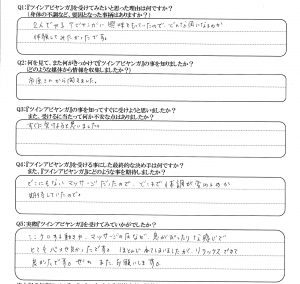 Q1:『ツインアビヤンガ』を受けてみたいと思った理由は何ですか？
（身体の不調など、要因となった事柄はありますか？）
2人でやるアビヤンガに興味をもったので、どんな風になるのか
体験してみたかったです。
Q2:何を見て、また何がきっかけで『ツインアビヤンガ』の事を知りましたか？
（どのような媒体から情報を収集しましたか？）
さんから聞きました。
Q3:『ツインアビヤンガ』の事を知ってすぐに受けようと思いましたか？
また、受けるに当たって何か不安な点はありましたか？
すぐに受けようと思いました。
Q4:『ツインアビヤンガ』を受ける事にした最終的な決め手は何ですか？
また、『ツインアビヤンガ』にどのような事を期待しましたか？
どこにもないマッサージだったので、どこまで体調が変わるのか
期待していたので。
Q5:実際『ツインアビヤンガ』を受けてみていかがでしたか？
マッサージの圧など、息がぴったりな感じで
とても心地良かったです。ほとんどねてしまいましたが、リラックスできて
良かったです。ぜひ、また、お願いします。